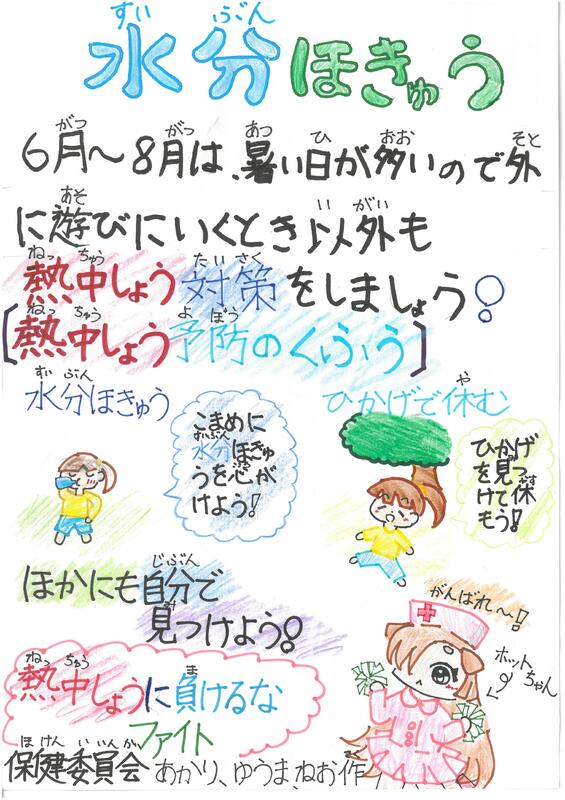 水分ほきゅう
すい ぶん
6月〜8月は、暑い日が多いので外
がつ がつ あつ ひ おお そと
に遊びにいくとき以外も
あそ い がい
熱中しょう対策をしましょう!
ねっ ちゅう たい さく
[熱中しょう予防のくふう]
ねっ ちゅう よ ぼう
水分ほきゅう
すい ぶん
こまめに
水分ほきゅ
すいぶん
うを心が
けよう!
ひかげで休む
や
ひかげ
を見つ
けて休
もう!
ほかにも自分で
じ ぶん
見つけよう!
み
がんばれ〜!
ホットちゃん
熱中しょうに負けるな
ねっ ちゅう ま
ファイト
保健委員会 あかり、ゆうま、ねお作
ほ けん い いん かい